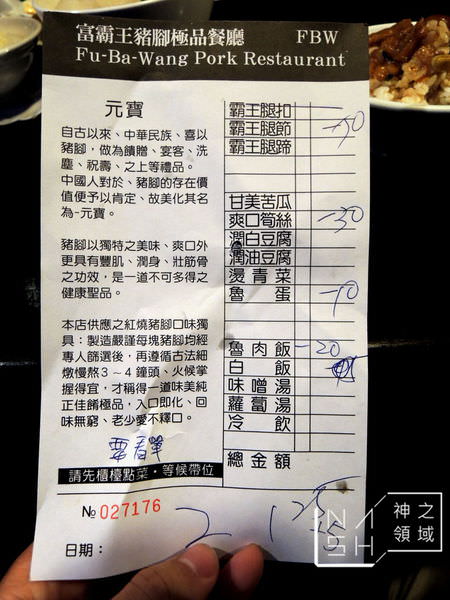 富霸王豬腳極品餐廳 FBW
Fu-Ba-Wang Pork Restaurant
元寶
自古以來、中華民族、喜以
豬腳，做為饋贈、宴客、洗
塵、祝壽、之上等禮品。
中國人對於、豬腳的存在價
值便予以肯定、故美化其名
為-元寶。
豬腳以獨特之美味、爽口外
更具有豐肌、潤身、壯筋骨
之功效，是一道不可多得之
健康聖品。
本店供應之紅燒豬腳口味獨
具：製造嚴謹每塊豬腳均經
專人篩選後，再遵循古法細
燉慢熬3～4鐘頭、火候掌
握得宜，才稱得一道味美純
正佳餚極品，入口即化、回
味無窮、老少愛不釋口。
請先櫃檯點菜，等候帶位
№ 027176
日期：
霸王腿扣
霸王腿節
霸王腿蹄
甘美苦瓜
爽口筍絲 -30
潤白豆腐
潤油豆腐
燙青菜
魯蛋 -10
魯肉飯 -20
白飯
味噌湯
蘿蔔湯
冷飲
總金額
2 1
NASH 神之
領域